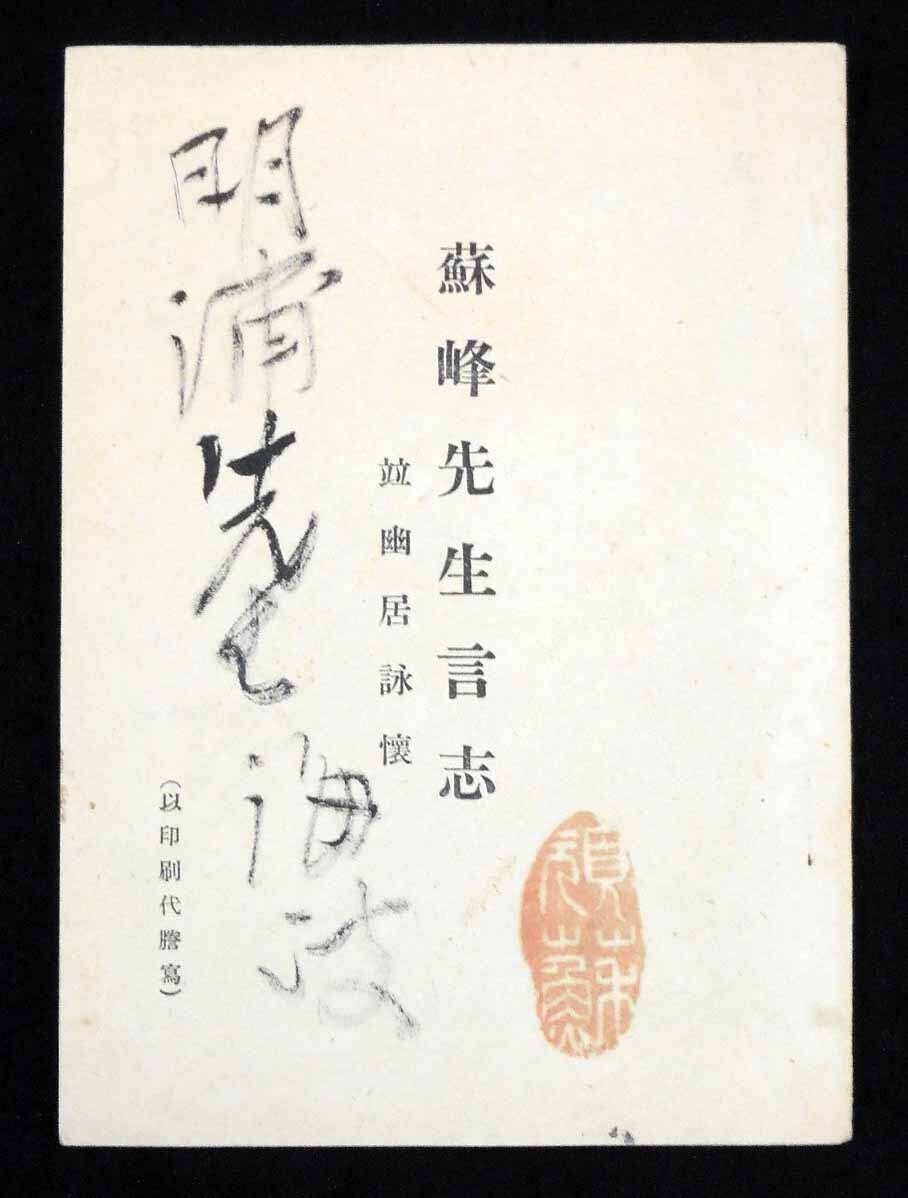 蘇峰先生言志
竝幽居詠懷
明浦先生 海波
（以印刷代謄寫）
頑蘇